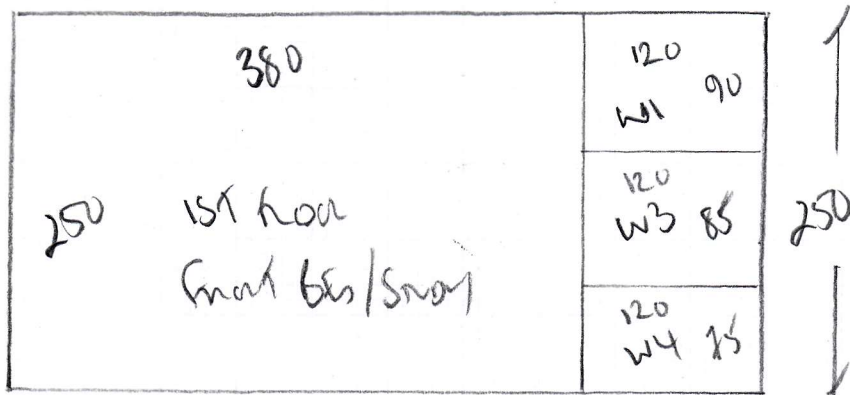 380
250
1ST Floor
Front Bed/Study
120
W1 90
120
W3 85
120
W4 75
250